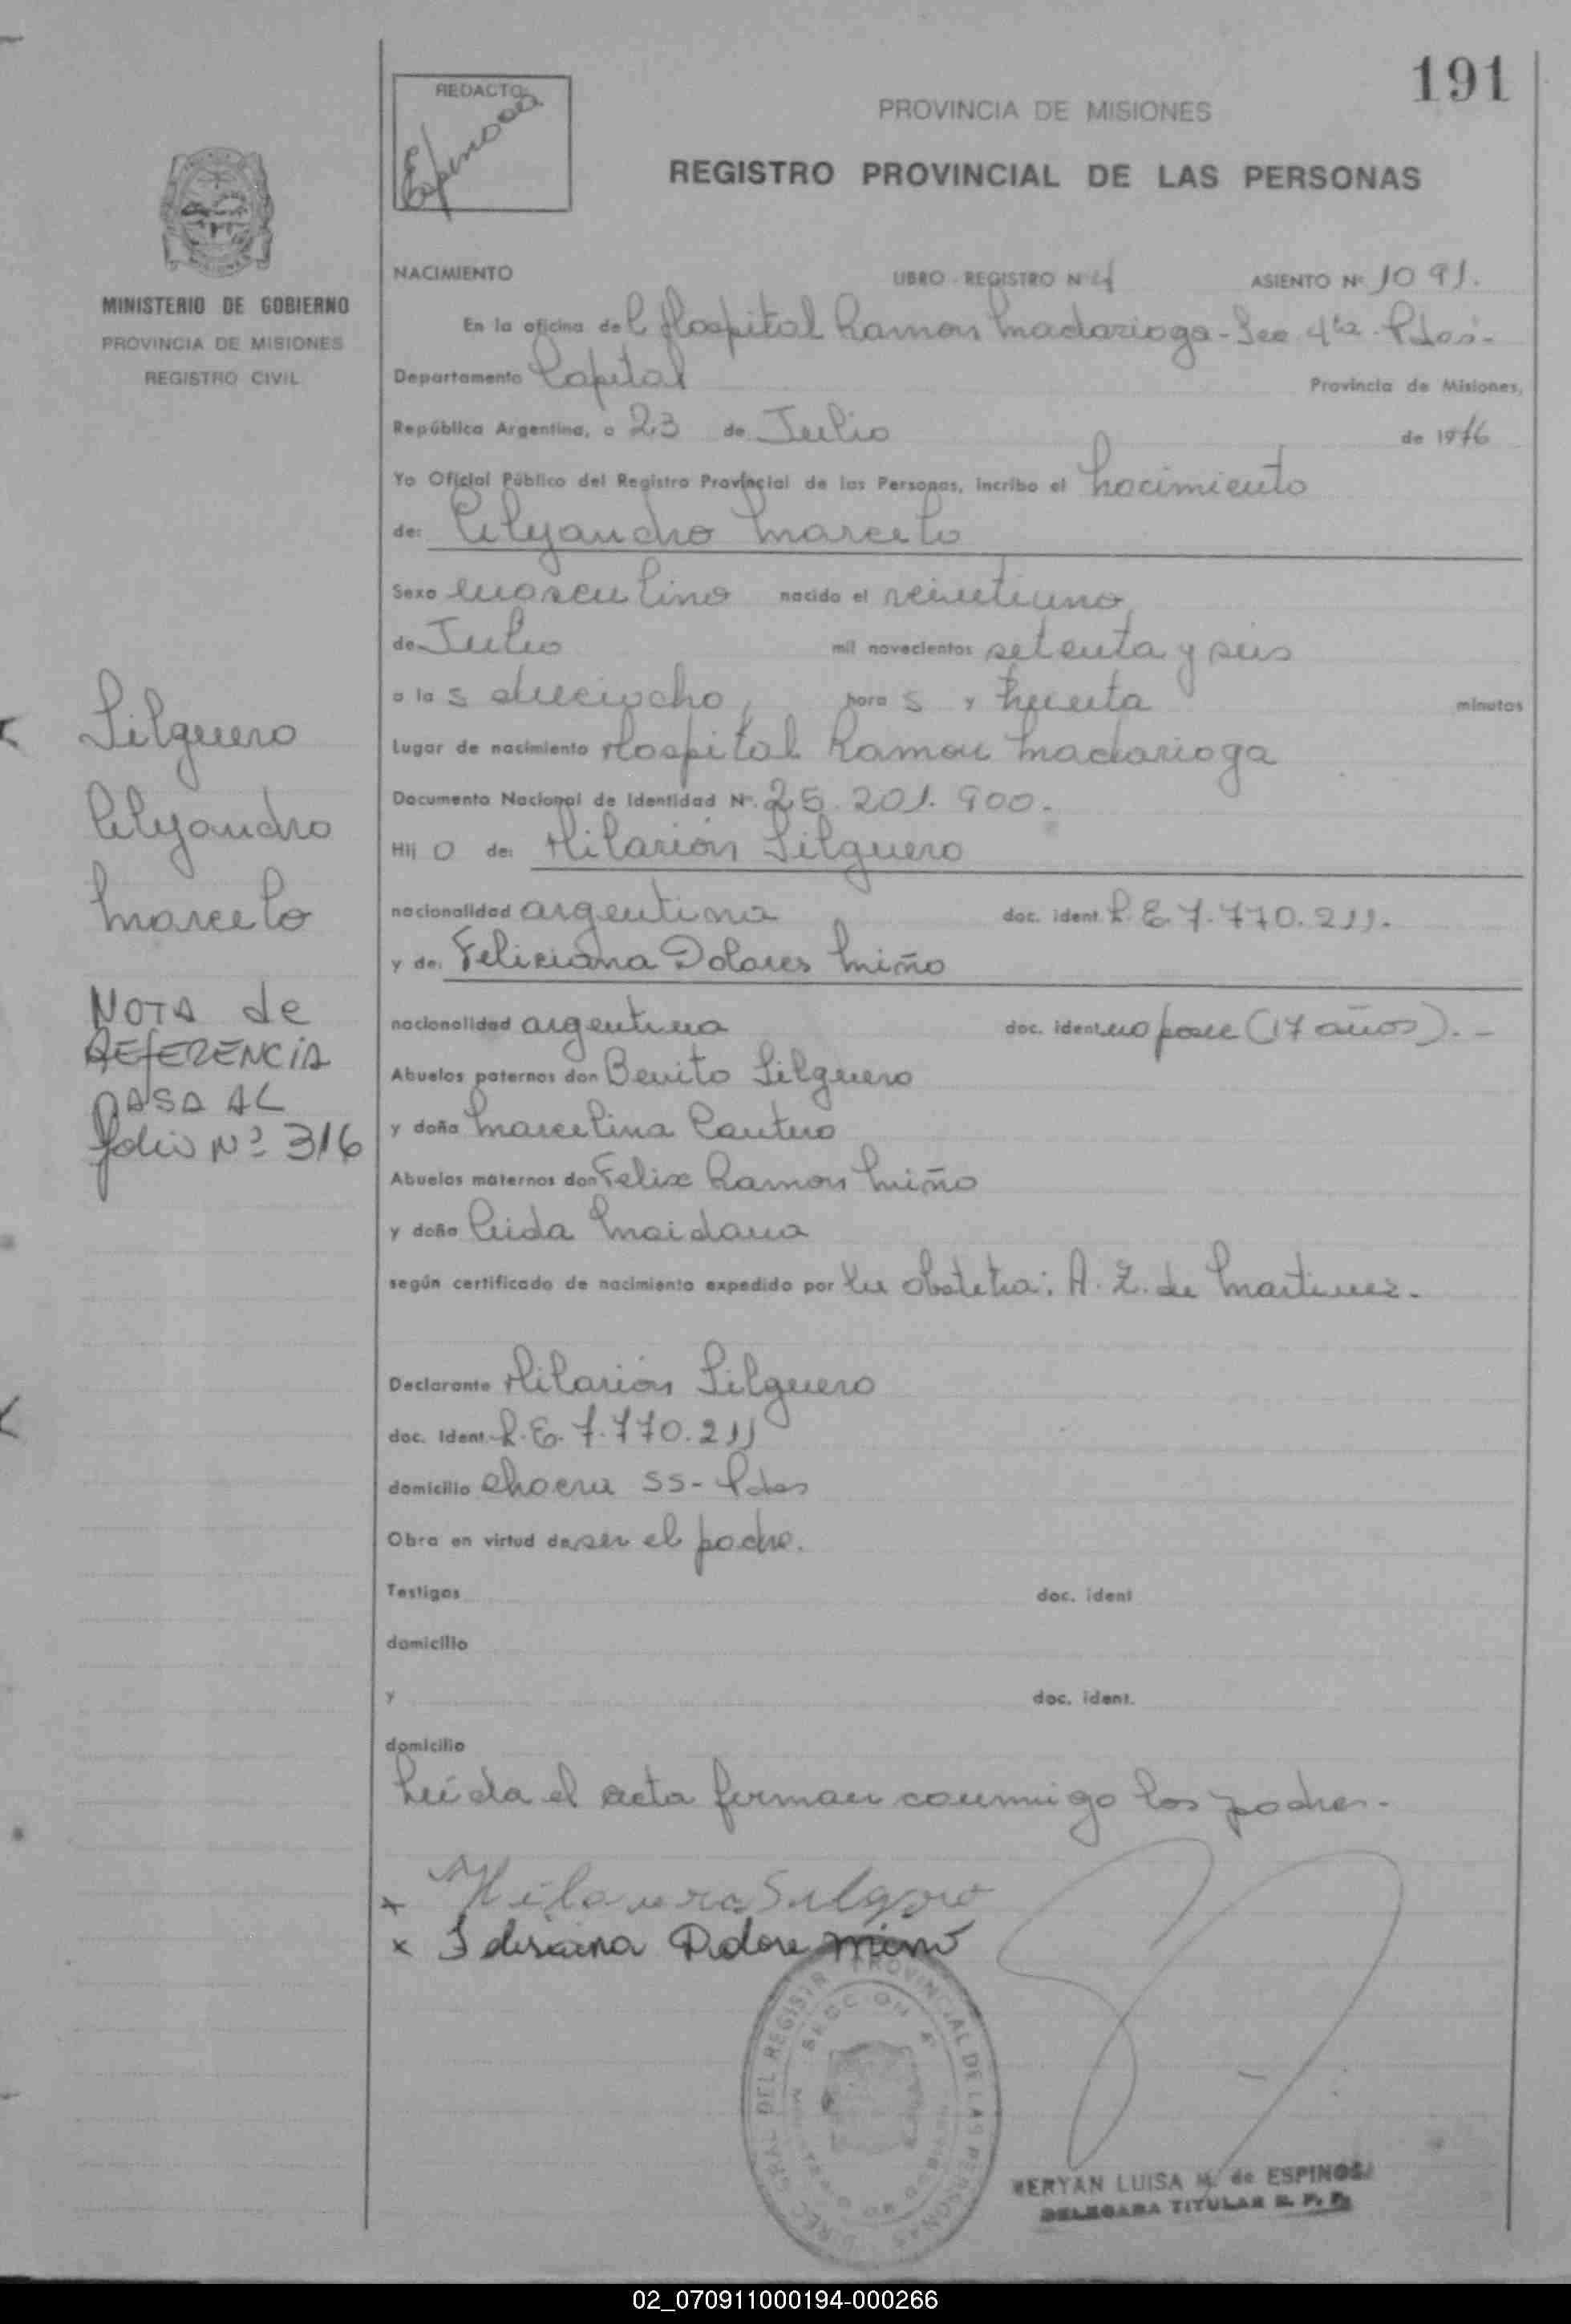 191
REDACTO:
Espinosa
PROVINCIA DE MISIONES
REGISTRO PROVINCIAL DE LAS PERSONAS
MINISTERIO DE GOBIERNO
PROVINCIA DE MISIONES
REGISTRO CIVIL
NACIMIENTO LIBRO - REGISTRO Nº 4 ASIENTO Nº 1091.
En la oficina del Hospital Ramon Madariaga - Sec. 4ta. Pdas.-
Departamento Capital Provincia de Misiones,
República Argentina, a 23 de Julio de 1976
Yo Oficial Público del Registro Provincial de las Personas, incribo el Nacimiento
de: Alejandro Marcelo
Sexo masculino nacido el veintiuno
de Julio mil novecientos setenta y seis
a las dieciocho, horas y treinta minutos
Lugar de nacimiento Hospital Ramon Madariaga
Documento Nacional de Identidad Nº. 25.201.900.
Hijo de: Hilarión Silguero
nacionalidad argentina doc. ident. L.E. 7.770.211.
y de: Feliciana Dolores Miño
nacionalidad argentina doc. ident. no posee (17 años). -
Abuelos paternos don Benito Silguero
y doña Marcelina Cantero
Abuelos maternos don Felix Ramon Miño
y doña Maidana
según certificado de nacimiento expedido por la obstetra: A. Z. de Martinez.
Declarante Hilarión Silguero
doc. ident. L.E. 7.770.211
domicilio chacra 55 - Pdas
Obra en virtud de ser el padre.
Testigos doc. ident
domicilio
y doc. ident.
domicilio
Leída el acta firman conmigo los padres.
Silguero
Alejandro
Marcelo
NOTA de
REFERENCIA
PASA AL
folio Nº 316
x
x Dolore Miño
DIREC. GRAL. DEL REGISTR. PROVINCIAL DE LAS PERSONAS
SECCION 4ª
MERYAN LUISA M. de ESPINOSA
DELEGADA TITULAR R. P. P.
02_070911000194-000266